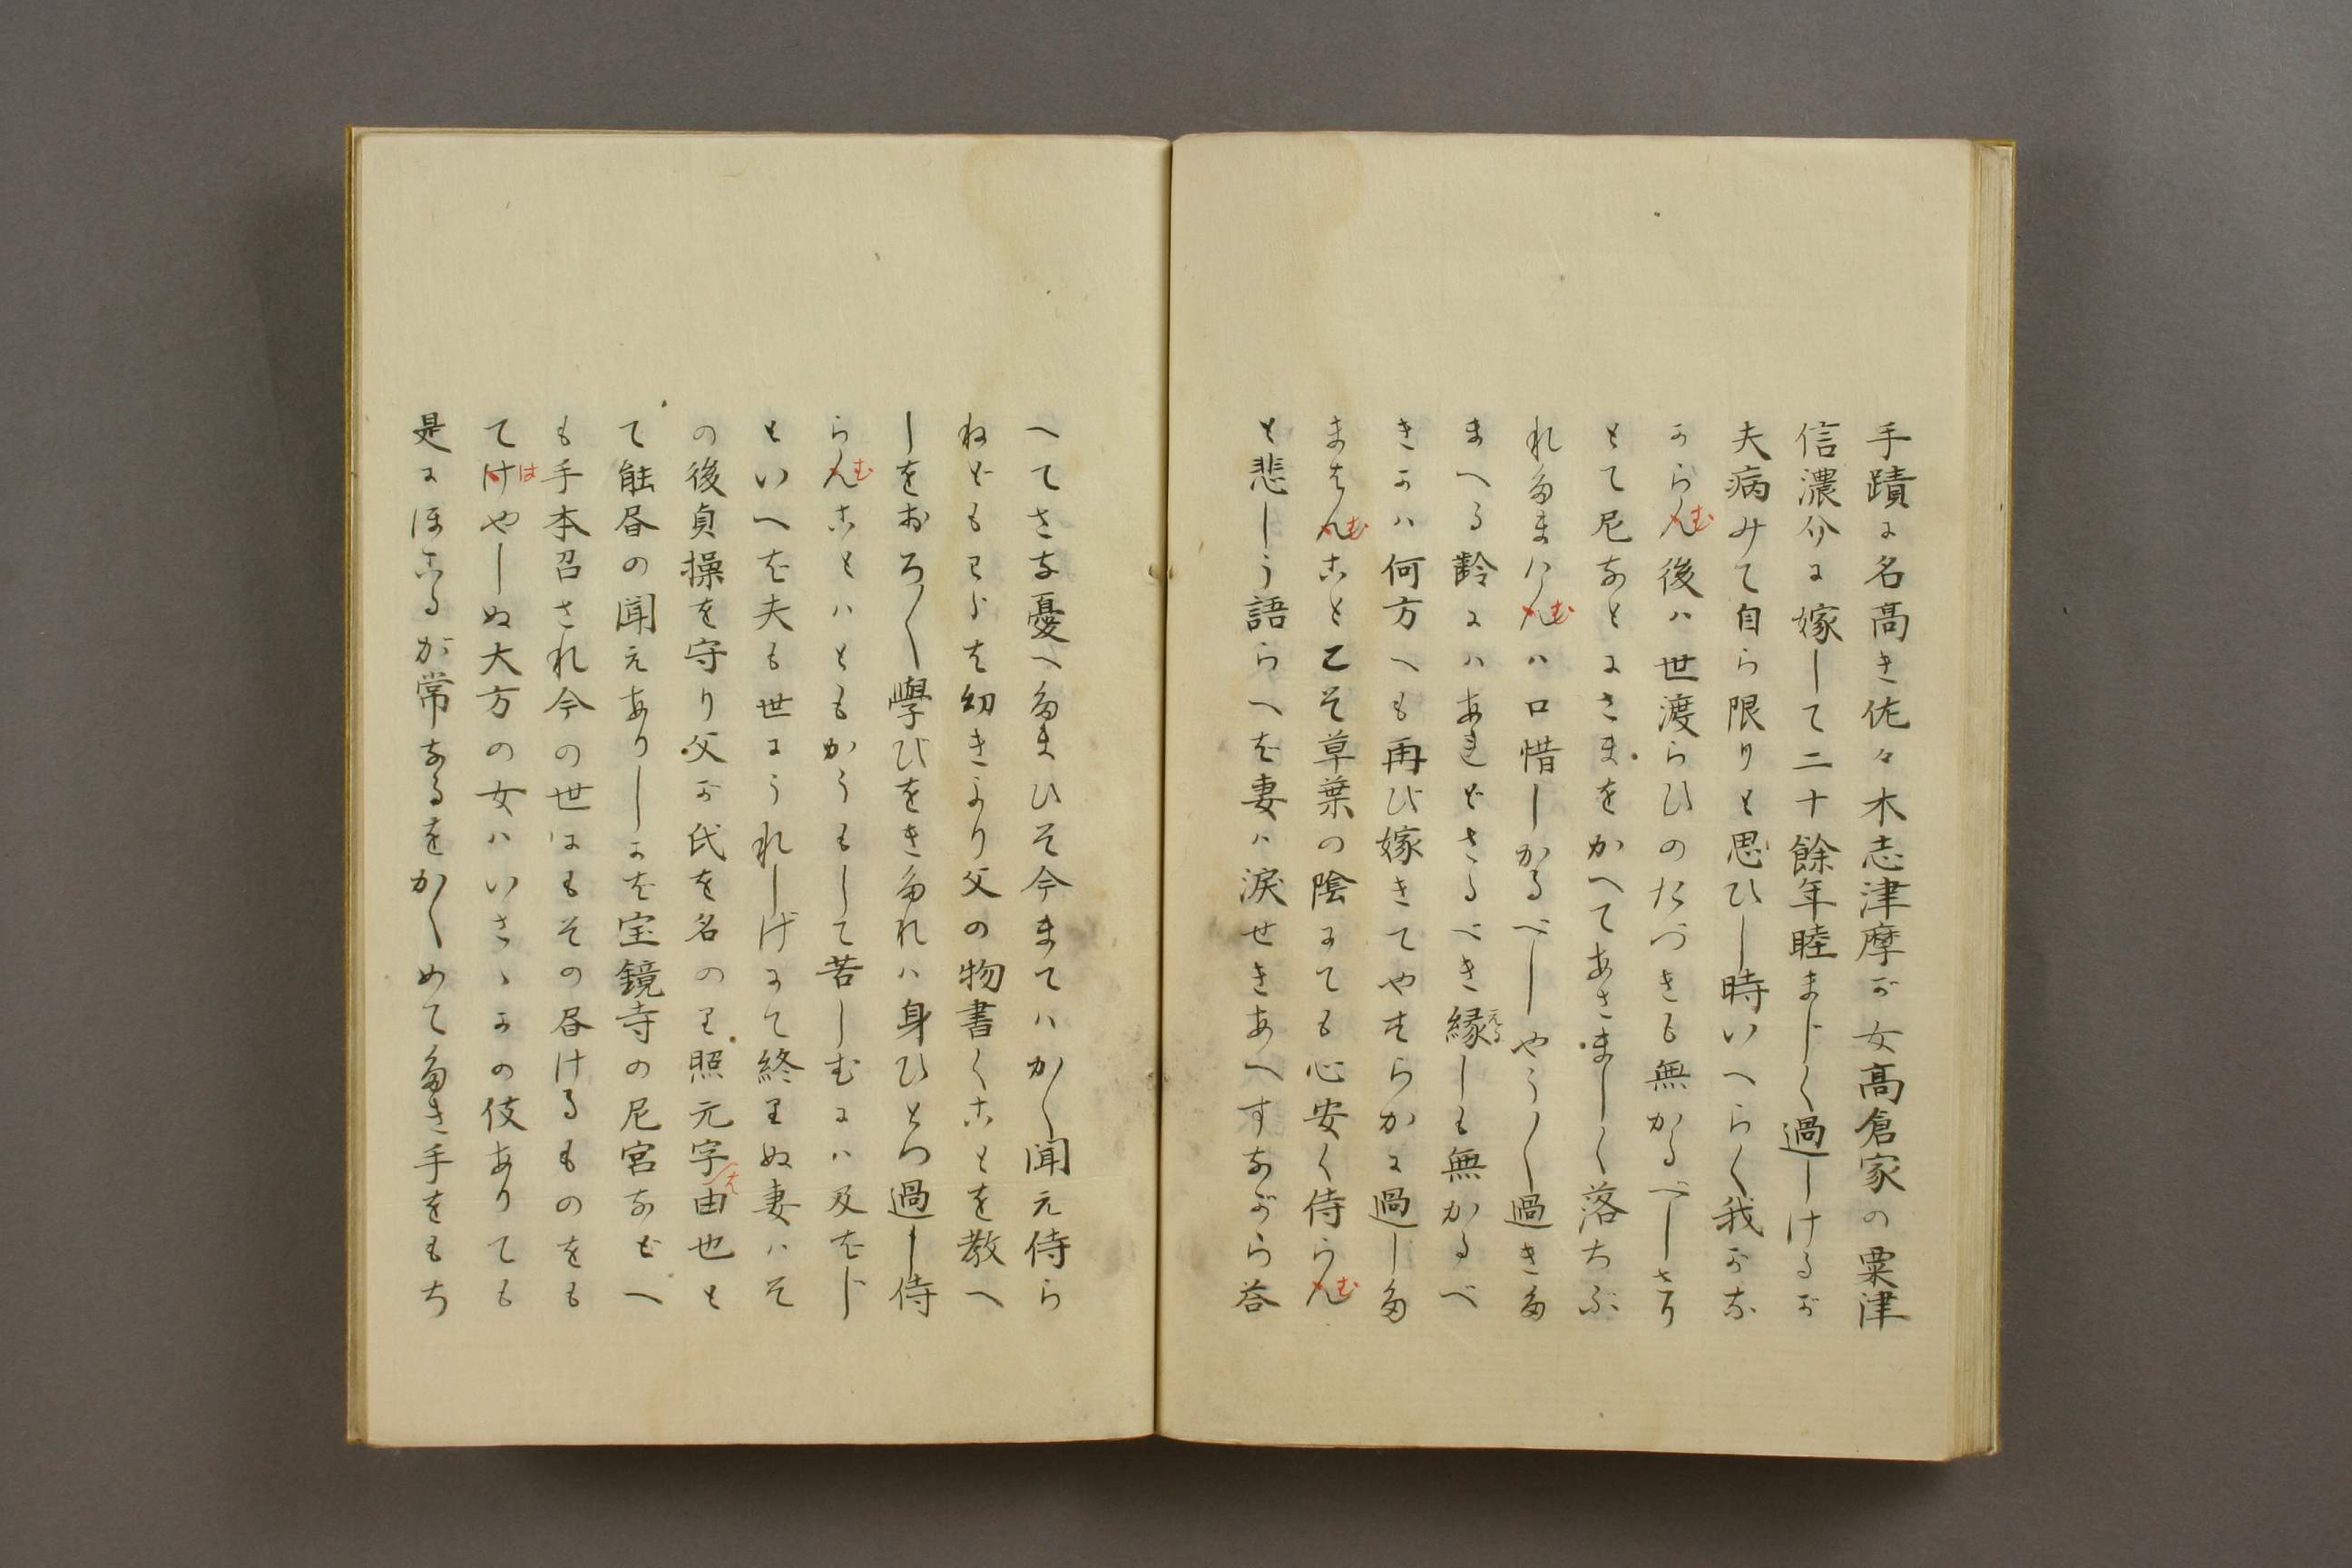 手蹟に名高き佐々木志津摩が女高倉家の粟津
信濃介に嫁して二十餘年睦ましく過しけるが
夫病みて自ら限りと思ひし時いへらく我がな
からん後ハ世渡らひのたづきも無かるべしさり
とて尼なとにさまをかへてあさましく落ちぶ
れたまハんハ口惜しかるべしやう〳〵過きた
まへる齢にハあれどさるべき縁しも無かるべ
きかハ何方へも再び嫁きてやすらかに過した
まはんことこそ草葉の陰にても心安く侍らん
と悲しう語らへば妻ハ涙せきあへすながら答
へてさな憂へたまひそ今まてハかく聞え侍ら
ねどもわらは幼きより父の物書くことを教へ
しをおろ〳〵學びをきたれハ身ひとつ過し侍
らんことハともかうもして苦しむにハ及ばじ
といへば夫も世にうれしげにて終りぬ妻ハそ
の後貞操を守り父が氏を名のり照元字由也と
て能昏の聞えありしかば宝鏡寺の尼宮などへ
も手本召され今の世にもその昏けるものをも
てけやしぬ大方の女ハいさゝかの伎ありても
是にほこるが常なるをかくめてたき手をもち